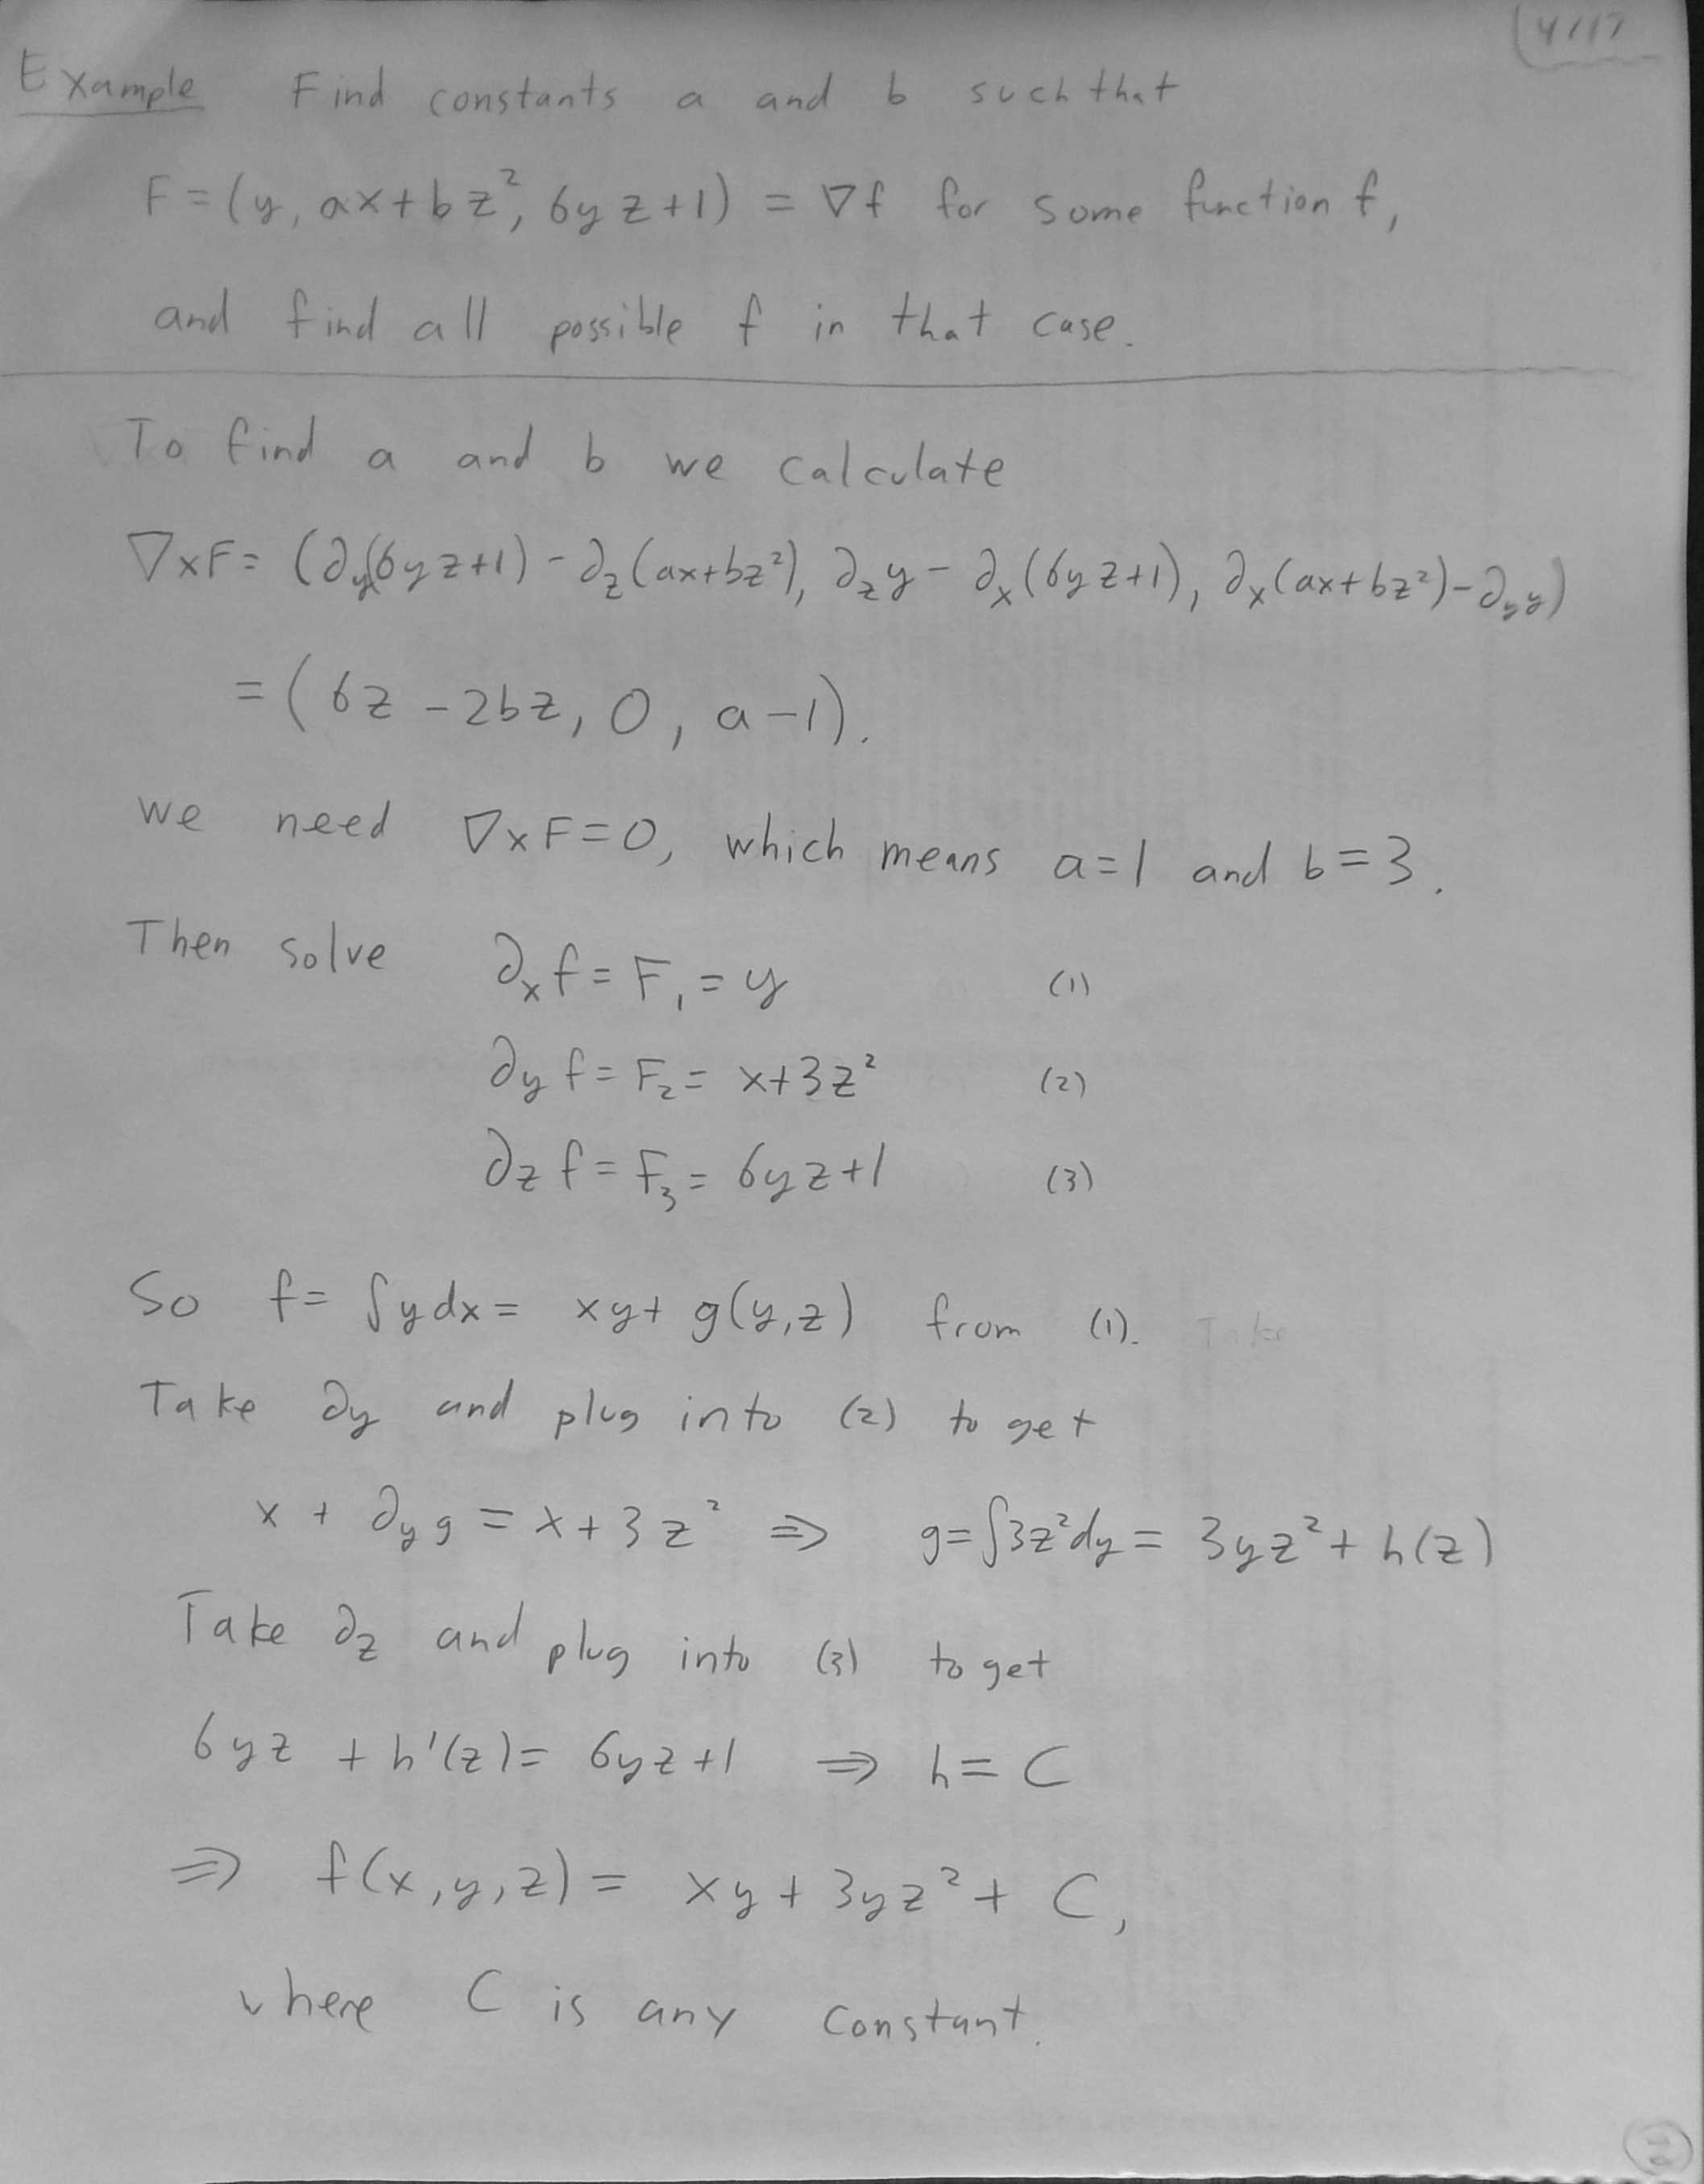 4/17
Example Find constants a and b such that
F = (y, ax+bz², 6yz+1) = ∇f for some function f,
and find all possible f in that case.
To find a and b we calculate
∇×F = (∂y(6yz+1) - ∂z(ax+bz²), ∂zy - ∂x(6yz+1), ∂x(ax+bz²) - ∂yy)
= (6z - 2bz, 0, a-1).
we need ∇×F=0, which means a=1 and b=3.
Then solve ∂xf = F₁ = y (1)
∂yf = F₂ = x+3z² (2)
∂zf = F₃ = 6yz+1 (3)
So f = ∫ydx = xy + g(y,z) from (1). Take
Take ∂y and plug into (2) to get
x + ∂yg = x+3z² ⇒ g=∫3z²dy = 3yz² + h(z)
Take ∂z and plug into (3) to get
6yz + h'(z) = 6yz+1 ⇒ h = C
⇒ f(x,y,z) = xy + 3yz² + C,
where C is any constant.
2